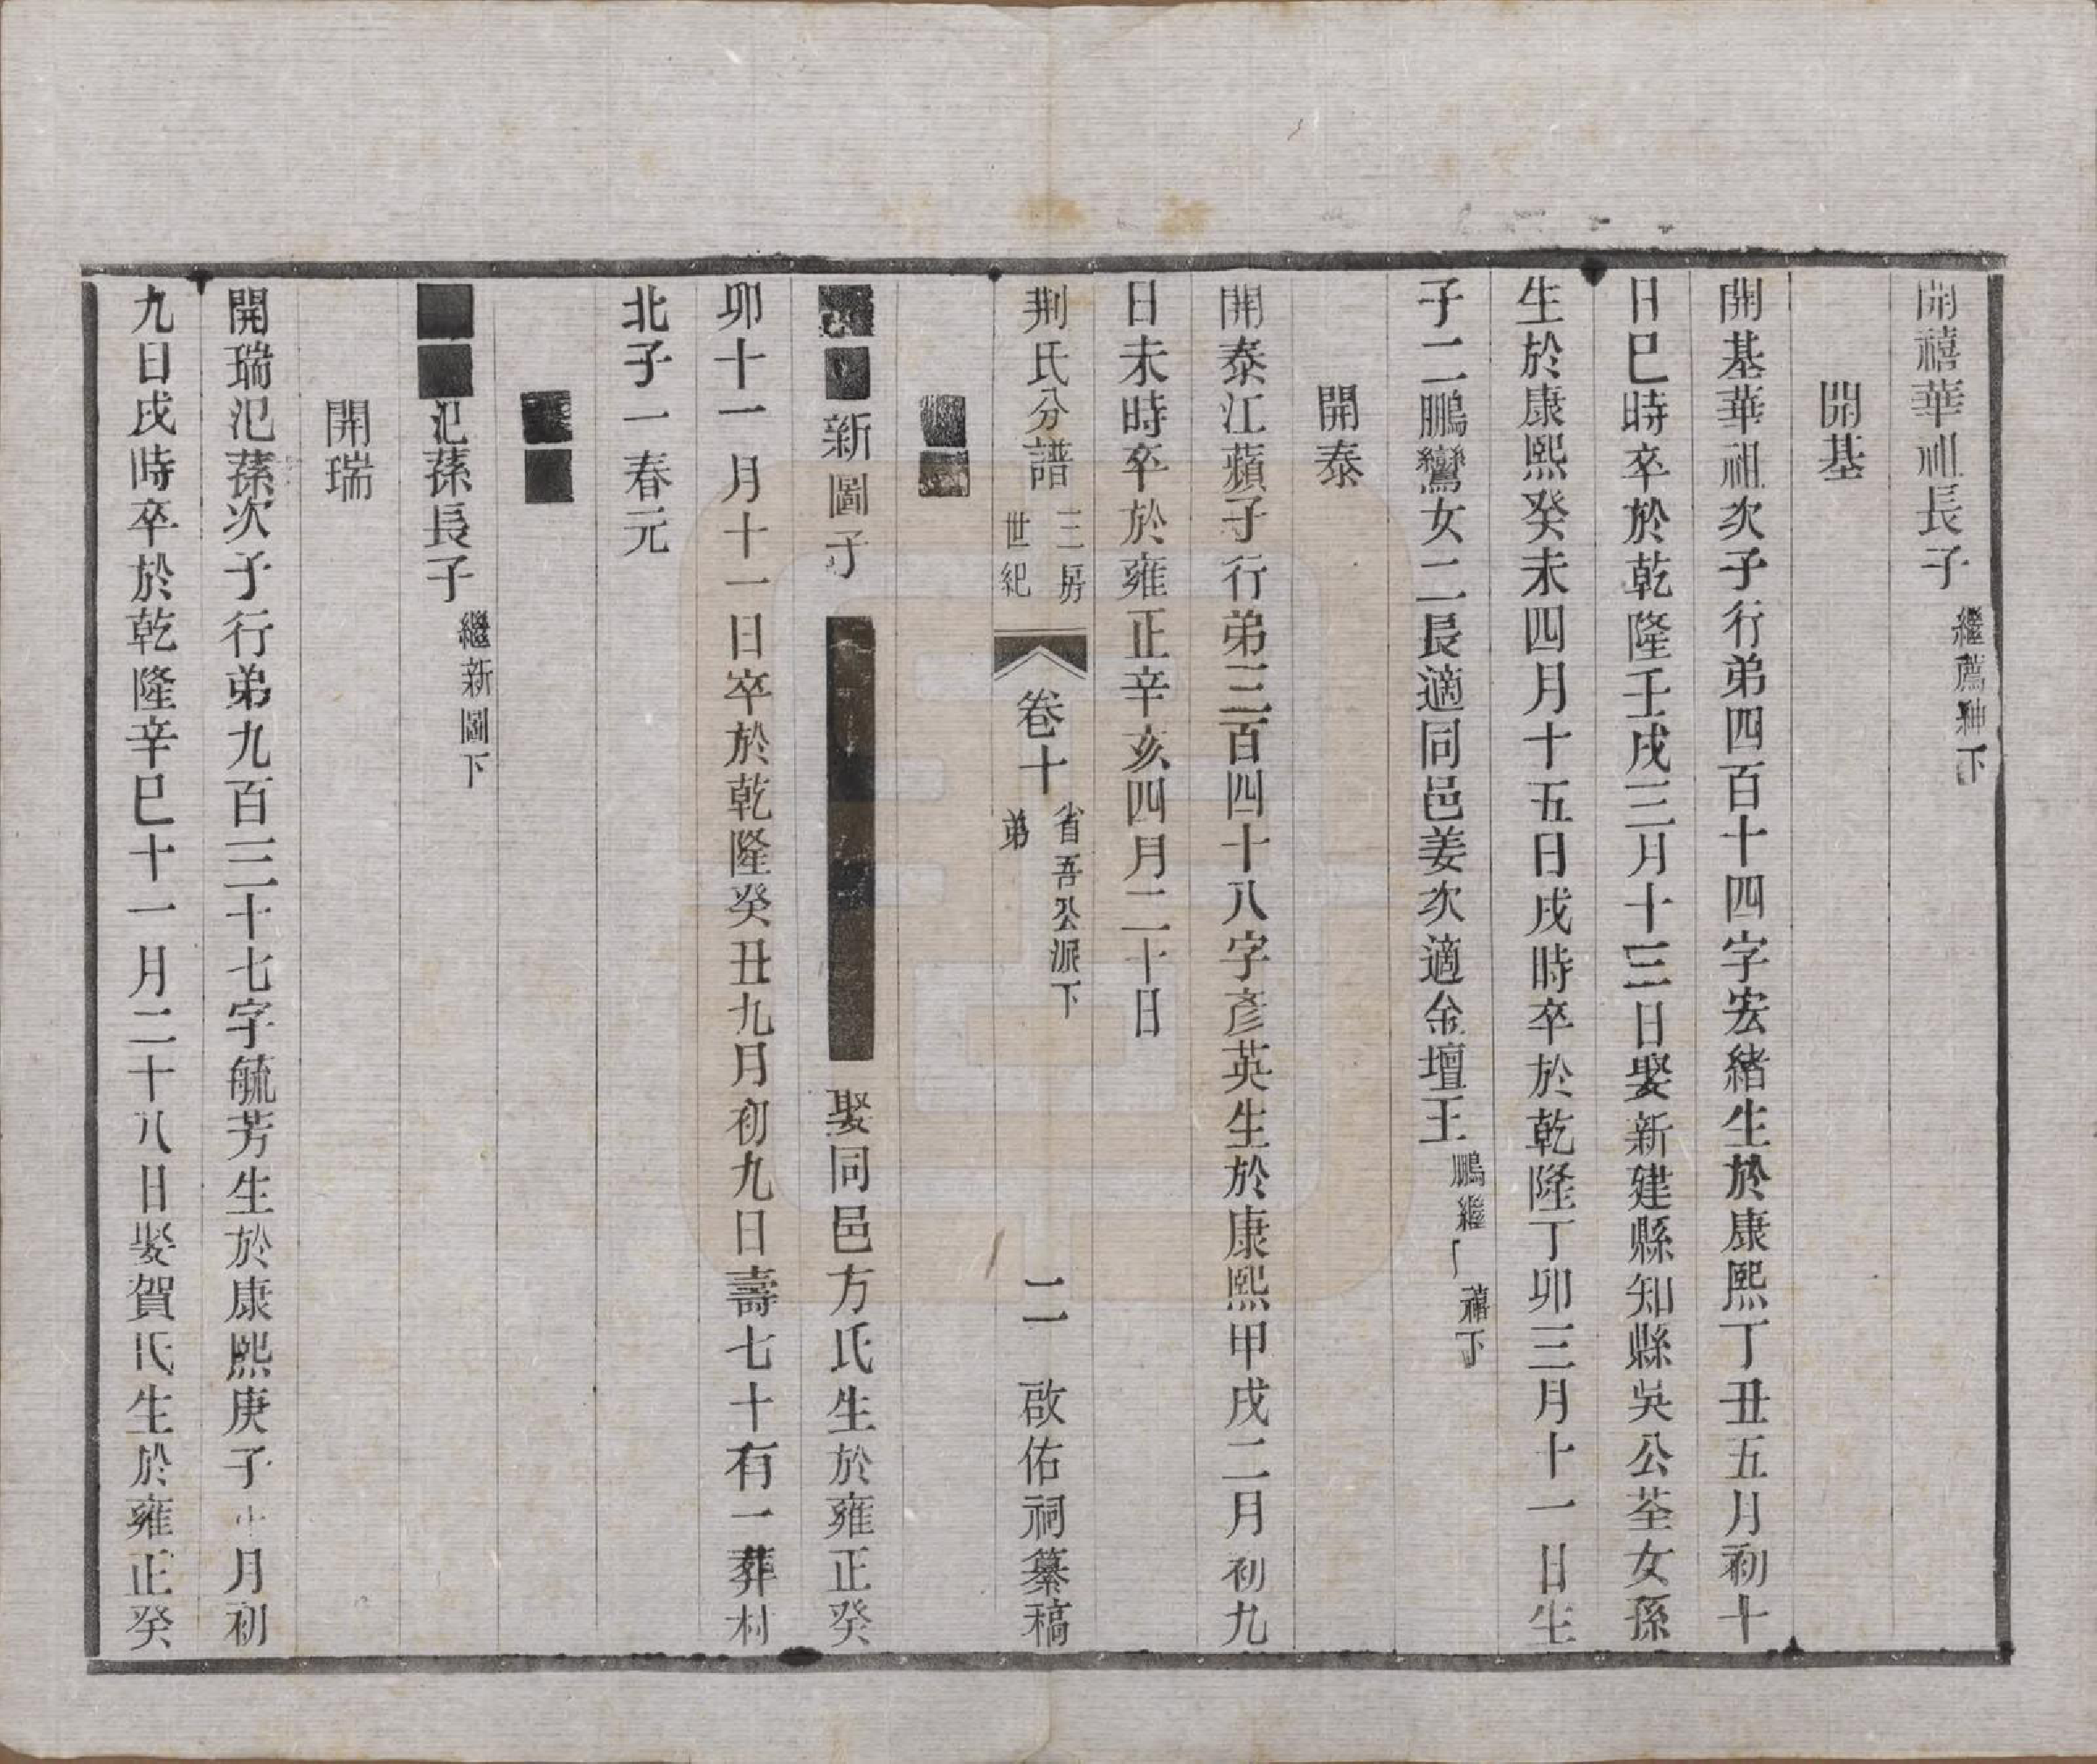 開禧華祖長子繼薦紳下
開基
開基華祖次子行弟四百十四字宏緒生於康熙丁丑五月初十
日巳時卒於乾隆壬戌三月十三日娶新建縣知縣吳公荃女孫
生於康熙癸未四月十五日戌時卒於乾隆丁卯三月十一日生
子二鵬鸞女二長適同邑姜次適金壇王鵬繼禧下
開泰
開泰江蘋子行弟三百四十八字彥英生於康熙甲戌二月初九
日未時卒於雍正辛亥四月二十日
荆氏分譜三房世紀卷十省吾公派下弟二啟佑祠纂稿
新圖子
娶同邑方氏生於雍正癸
卯十一月十一日卒於乾隆癸丑九月初九日壽七十有一葬村
北子一春元
氾蓀長子繼新圖下
開瑞
開瑞氾蓀次子行弟九百三十七字毓芳生於康熙庚子月初
九日戌時卒於乾隆辛巳十一月二十八日娶賀氏生於雍正癸